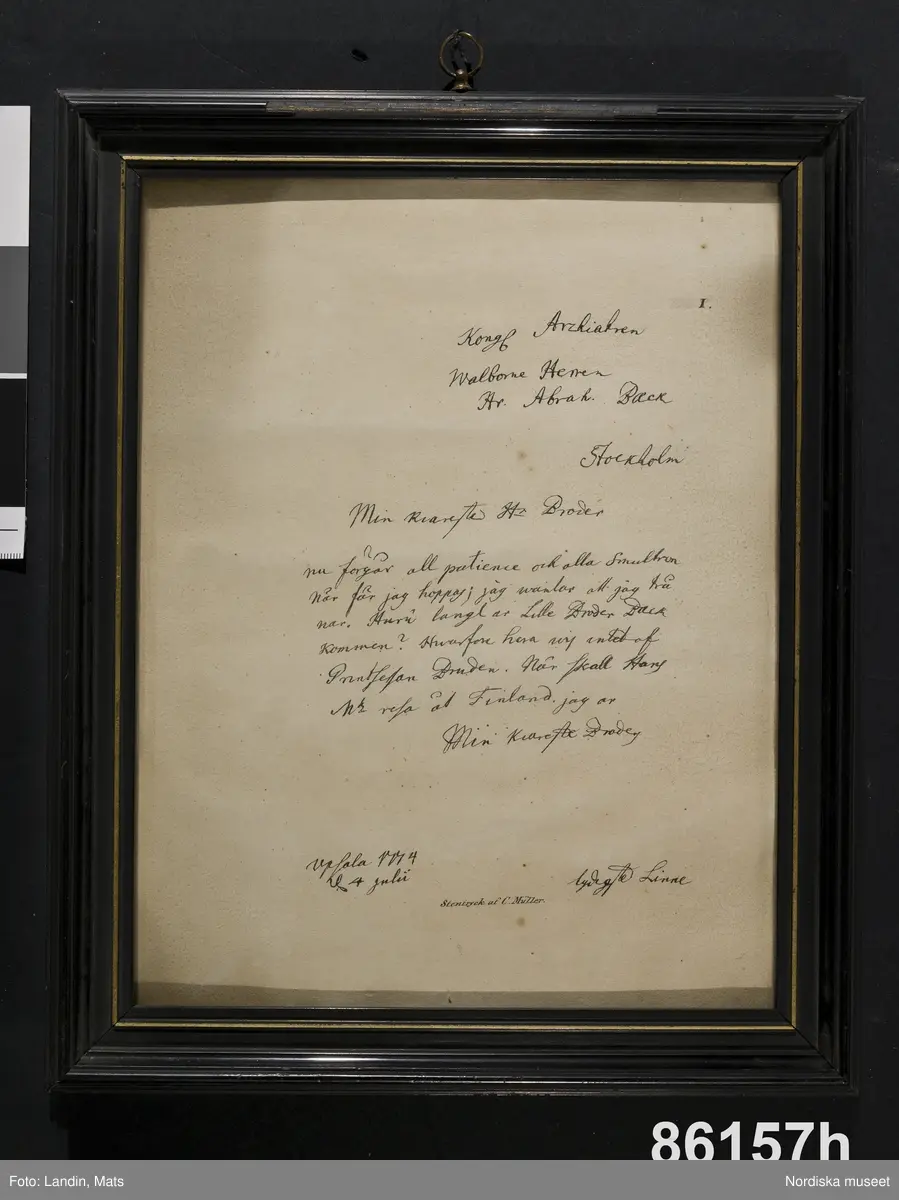 1.
Kongl Archiatren
Walborne Herren
Hr. Abrah. Bæck
Stockholm
Min kiareste Hr Broder
nu förgår all patience och alla Smultron
når får jag hoppas; jag wäntar att jag trå
nar. Huru långt ar Lille Broder Bæck
kommen? Hwarfore hera wij intet af
Printsessan Bruden. Når skall Hans
Mt resa åt Finland. jag ar
Min kiareste Broders
Upsala 1774
d 4 Julii
lydigste Linne
Stentryck af C. Müller.
86157h
Foto: Landin, Mats
Nordiska museet